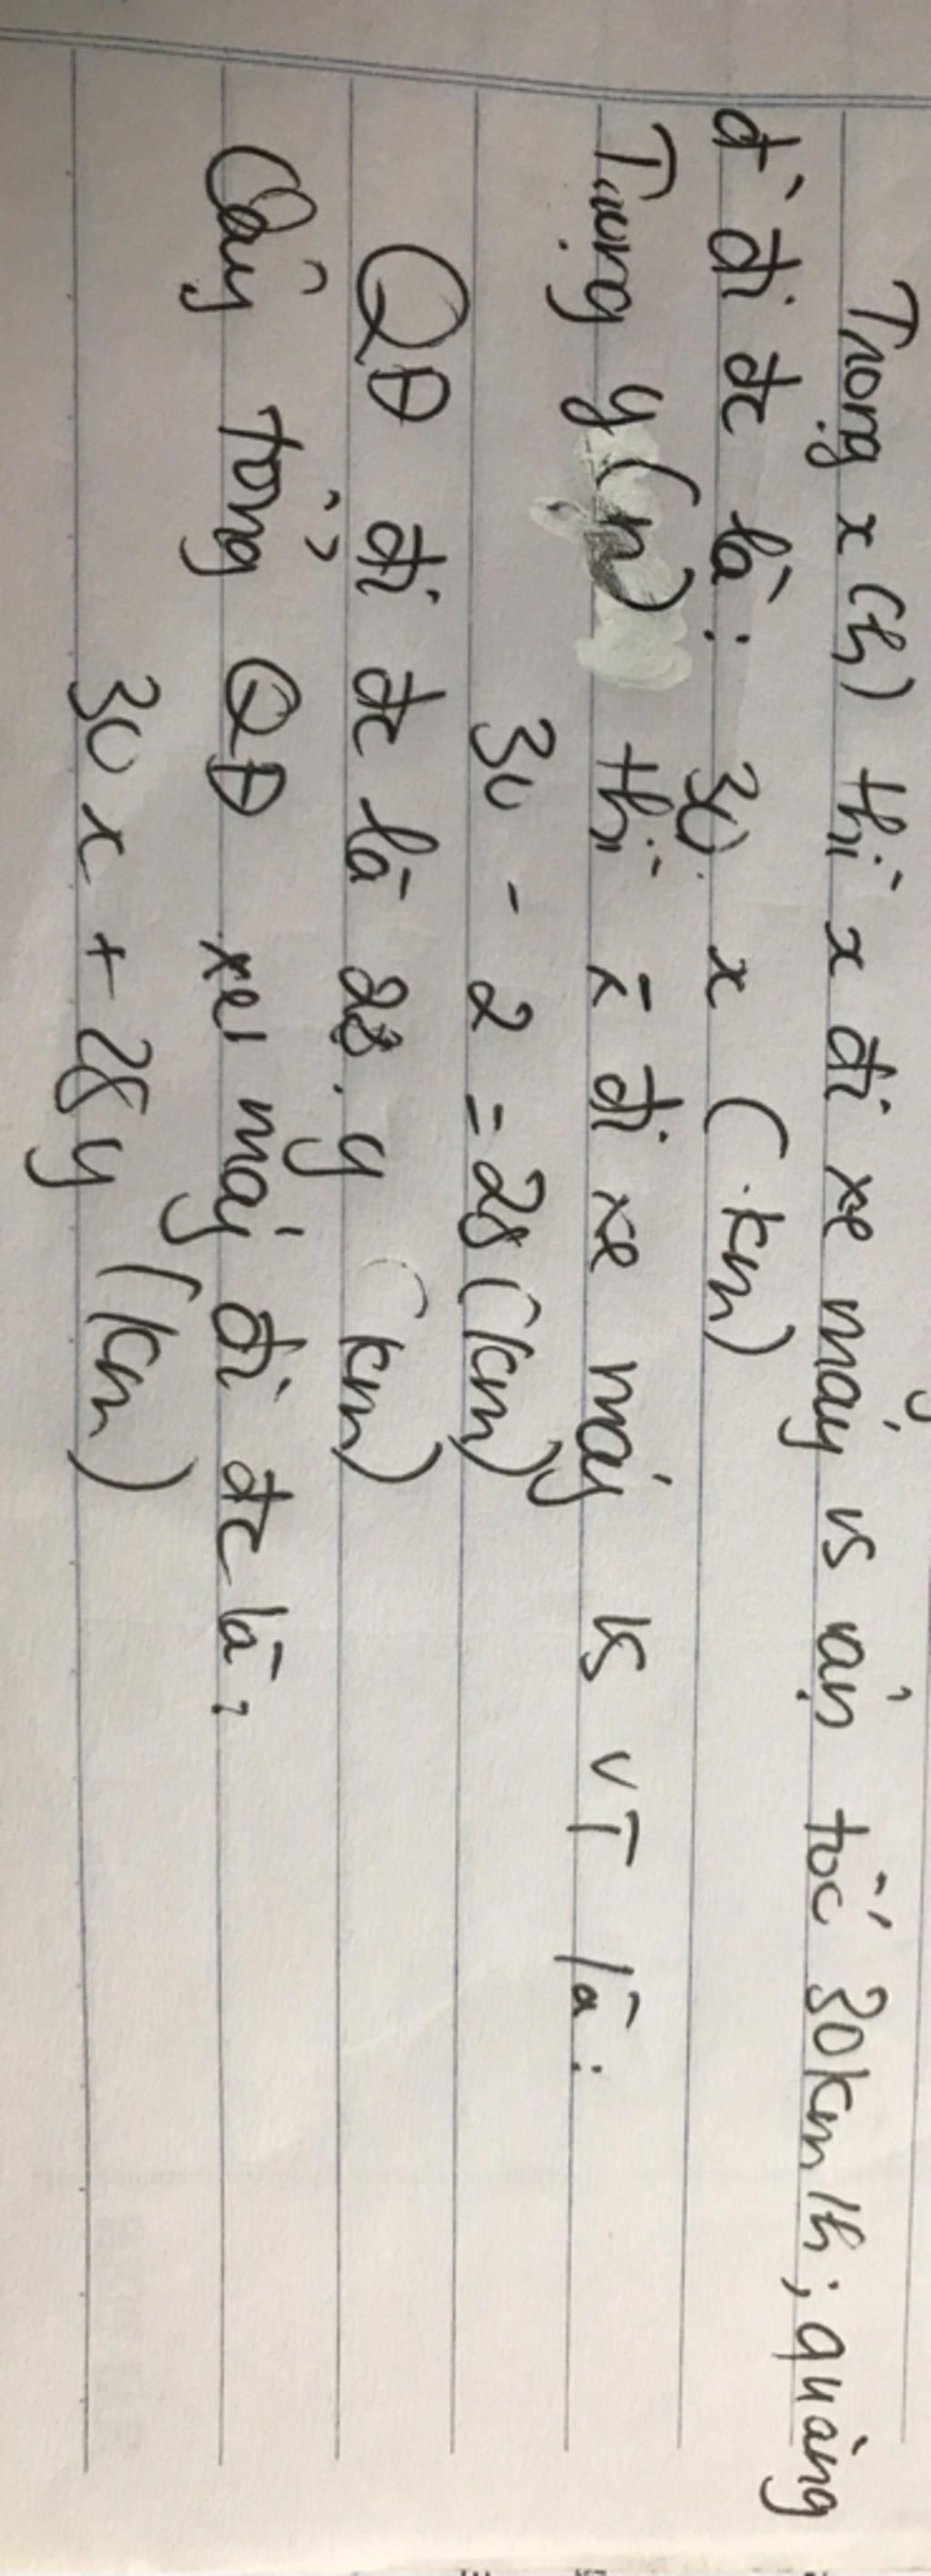 Trong x (h) thì x đi xe máy vs vận tốc 30km/h; quãng
đ' đi đc là: 30. x (km)
Trong y (h) thì x đi xe máy vs VT là:
30 - 2 = 28 (km)
QĐ đi đc là 28. y (km)
Vậy tổng QĐ xe máy đi đc là:
30 x + 28 y (km)